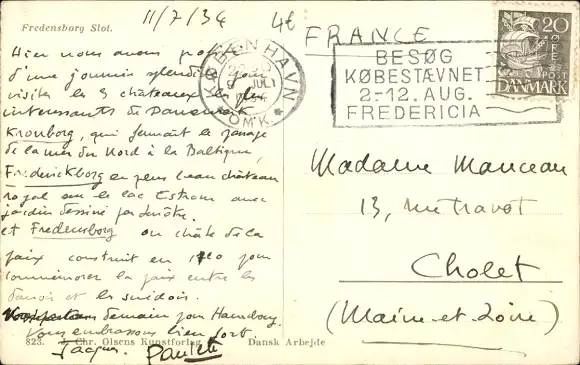 Fredensborg Slot.
11/7/34
4E
FRANCE
KØBENHAVN
JULI
OMK.
BESØG
KØBESTÆVNET
2.-12. AUG.
FREDERICIA
20
ØRE
POST
DANMARK
Hier nous avons profité
d'une journée splendide pour
visiter les 3 châteaux les plus
intéressants de Danemark
Kronborg, qui fermait le passage
de la mer du Nord à la Baltique,
Frederickborg en plus beau château
royal sur le lac Estrom avec
jardin dessiné par
et Fredensborg ou château de la
paix construit en 1720 pour
commémorer la paix entre les
danois et les suédois.
demain pour Hambourg
Vous embrassons bien fort
Jacques. Paulette
Madame Manceau
13, rue Travot
Cholet
(Maine-et-Loire)
823. Chr. Olsens Kunstforlag Dansk Arbejde